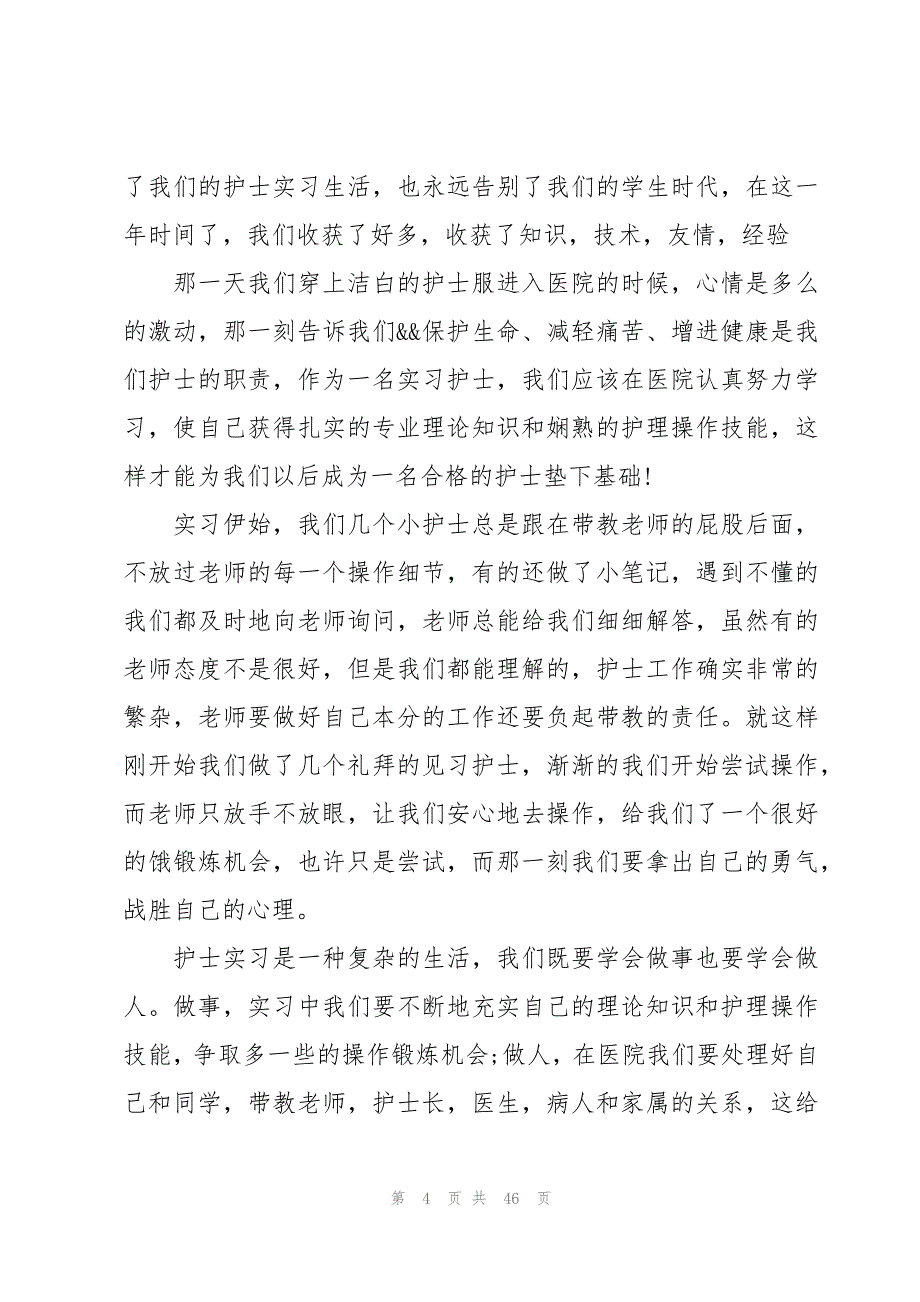 了我们的护士实习生活，也永远告别了我们的学生时代，在这一
年时间了，我们收获了好多，收获了知识，技术，友情，经验
那一天我们穿上洁白的护士服进入医院的时候，心情是多么
的激动，那一刻告诉我们&&保护生命、减轻痛苦、增进健康是我
们护士的职责，作为一名实习护士，我们应该在医院认真努力学
习，使自己获得扎实的专业理论知识和娴熟的护理操作技能，这
样才能为我们以后成为一名合格的护士垫下基础!
实习伊始，我们几个小护士总是跟在带教老师的屁股后面，
不放过老师的每一个操作细节，有的还做了小笔记，遇到不懂的
我们都及时地向老师询问，老师总能给我们细细解答，虽然有的
老师态度不是很好，但是我们都能理解的，护士工作确实非常的
繁杂，老师要做好自己本分的工作还要负起带教的责任。就这样
刚开始我们做了几个礼拜的见习护士，渐渐的我们开始尝试操作，
而老师只放手不放眼，让我们安心地去操作，给我们了一个很好
的饿锻炼机会，也许只是尝试，而那一刻我们要拿出自己的勇气，
战胜自己的心理。
护士实习是一种复杂的生活，我们既要学会做事也要学会做
人。做事，实习中我们要不断地充实自己的理论知识和护理操作
技能，争取多一些的操作锻炼机会;做人，在医院我们要处理好自
己和同学，带教老师，护士长，医生，病人和家属的关系，这给
第 4 页 共 46 页